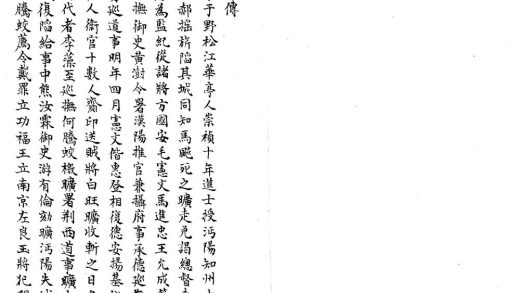 傳
于野松江華亭人崇禎十年進士授沔陽知州十
郝搖旂陷其城同知馬飈死之曠走免謁總督
為監紀從諸將方國安毛憲文馬進忠王允成
撫御史黃澍令署漢陽推官兼攝府事承德巡
巡道事明年四月憲文偕惠登相復德安揚基
人衛官十數人齎印送賊將白旺曠收斬之日
代者李藻至巡撫何騰蛟檄曠署荊西道事曠
復陷給事中熊汝霖御史游有倫劾曠沔陽失
騰蛟薦令戴罪立功福王立南京左良玉將犯